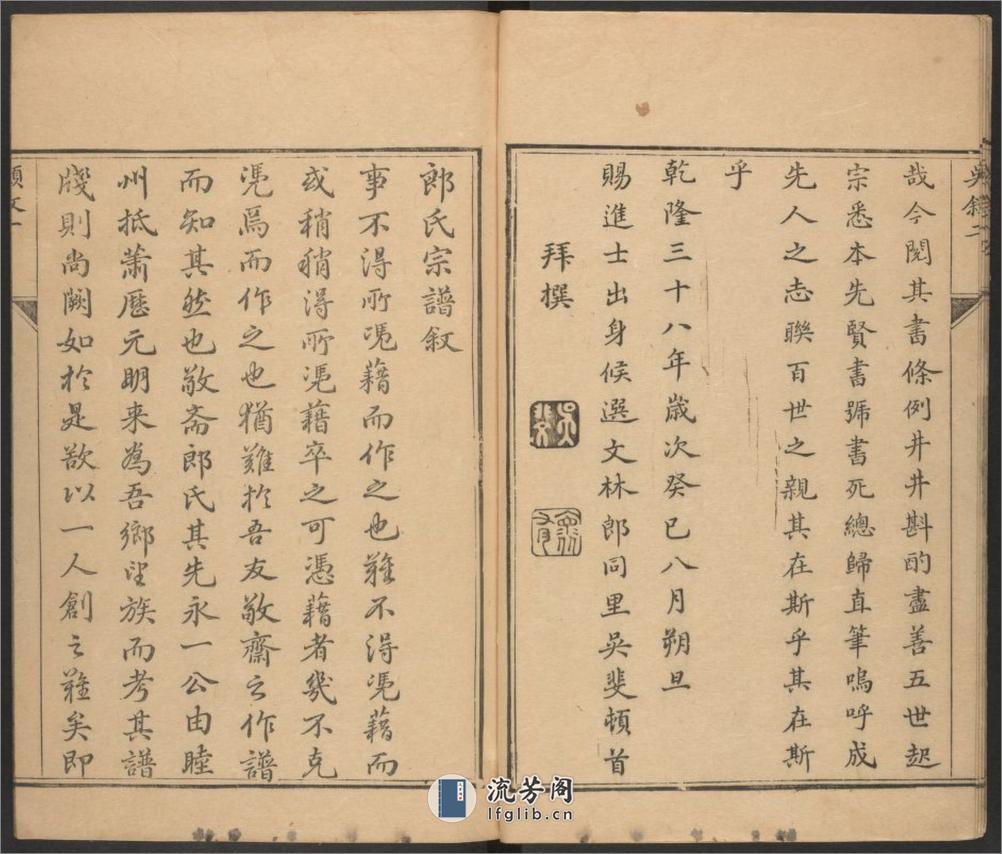 吳敘二
哉今閱其書條例井井斟酌盡善五世起
宗悉本先賢書號書死總歸直筆嗚呼成
先人之志聯百世之親其在斯乎其在斯
乎
乾隆三十八年歲次癸巳八月朔旦
賜進士出身候選文林郎同里吳斐頓首
拜撰
吳斐
郎氏宗譜敘
事不得所凴藉而作之也難不得凴藉而
或稍稍得所凴藉卒之可憑藉者幾不克
凴焉而作之也猶難於吾友敬齋之作譜
而知其然也敬斋郎氏其先永一公由睦
州抵蕭歷元明來為吾鄉望族而考其譜
牋則尚闕如於是欲以一人創之難矣即
流芳阁
lfglib.cn